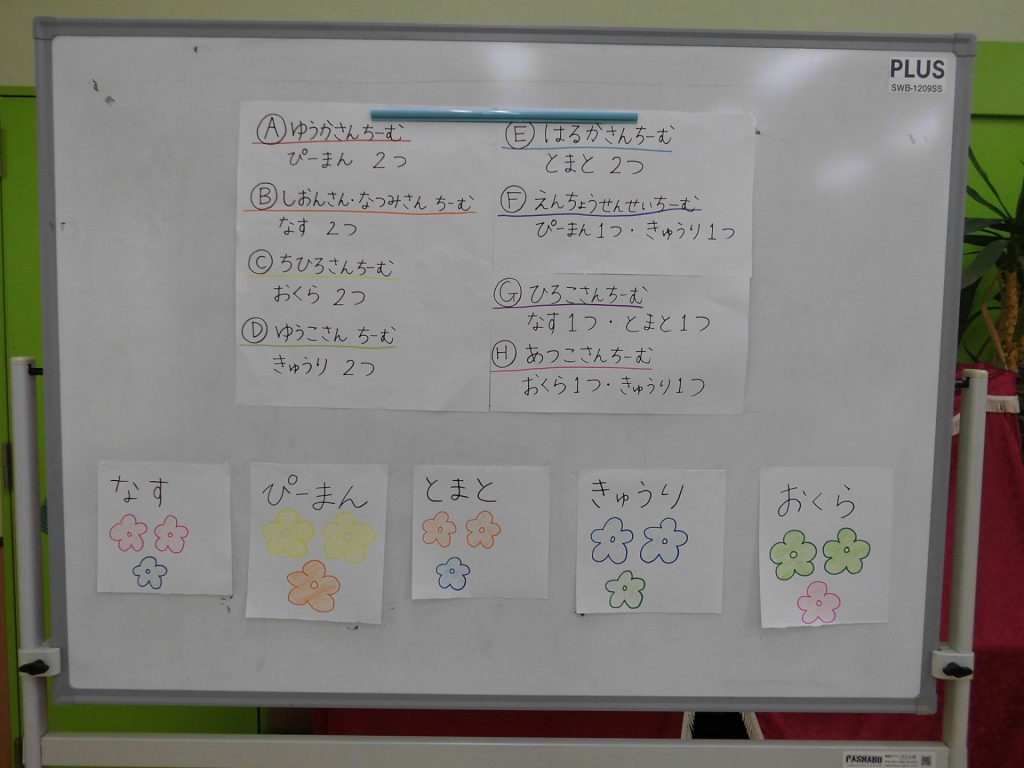 PLUS
SWB-1209SS
Ⓐ ゆうかさんちーむ
ぴーまん 2つ
Ⓑ しおんさん・なつみさん ちーむ
なす 2つ
Ⓒ ちひろさんちーむ
おくら 2つ
Ⓓ ゆうこさん ちーむ
きゅうり 2つ
Ⓔ はるかさんちーむ
とまと 2つ
Ⓕ えんちょうせんせいちーむ
ぴーまん1つ・きゅうり1つ
Ⓖ ひろこさんちーむ
なす1つ・とまと1つ
Ⓗ あつこさんちーむ
おくら1つ・きゅうり1つ
なす
ぴーまん
とまと
きゅうり
おくら
PASHABO